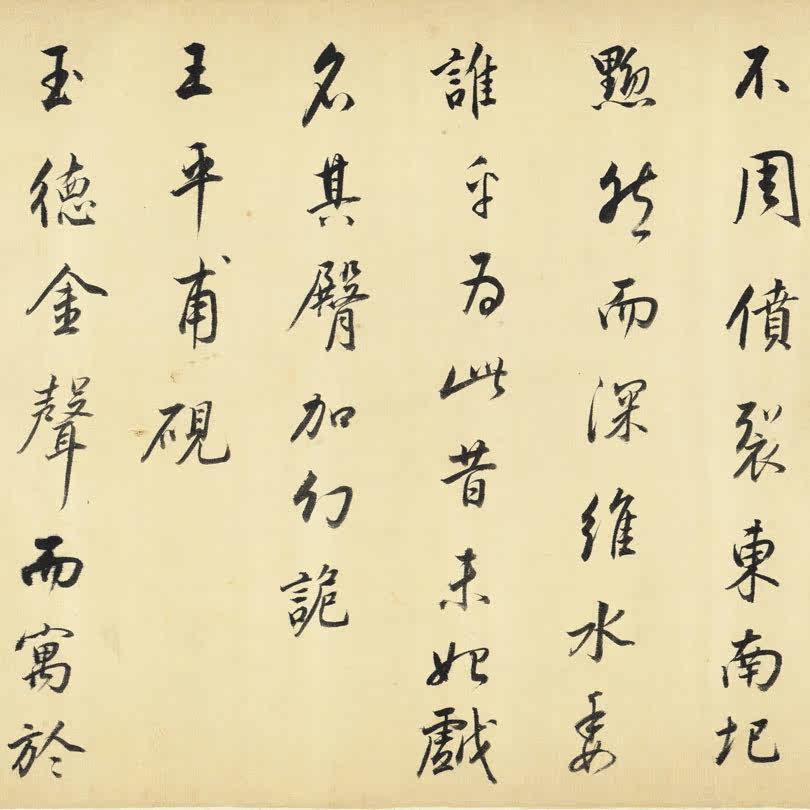 不周僨裂東南圮
黝然而深維水委
誰乎為此昔未始戲
名其臀加幻詭
王平甫硯
玉德金聲而寓於